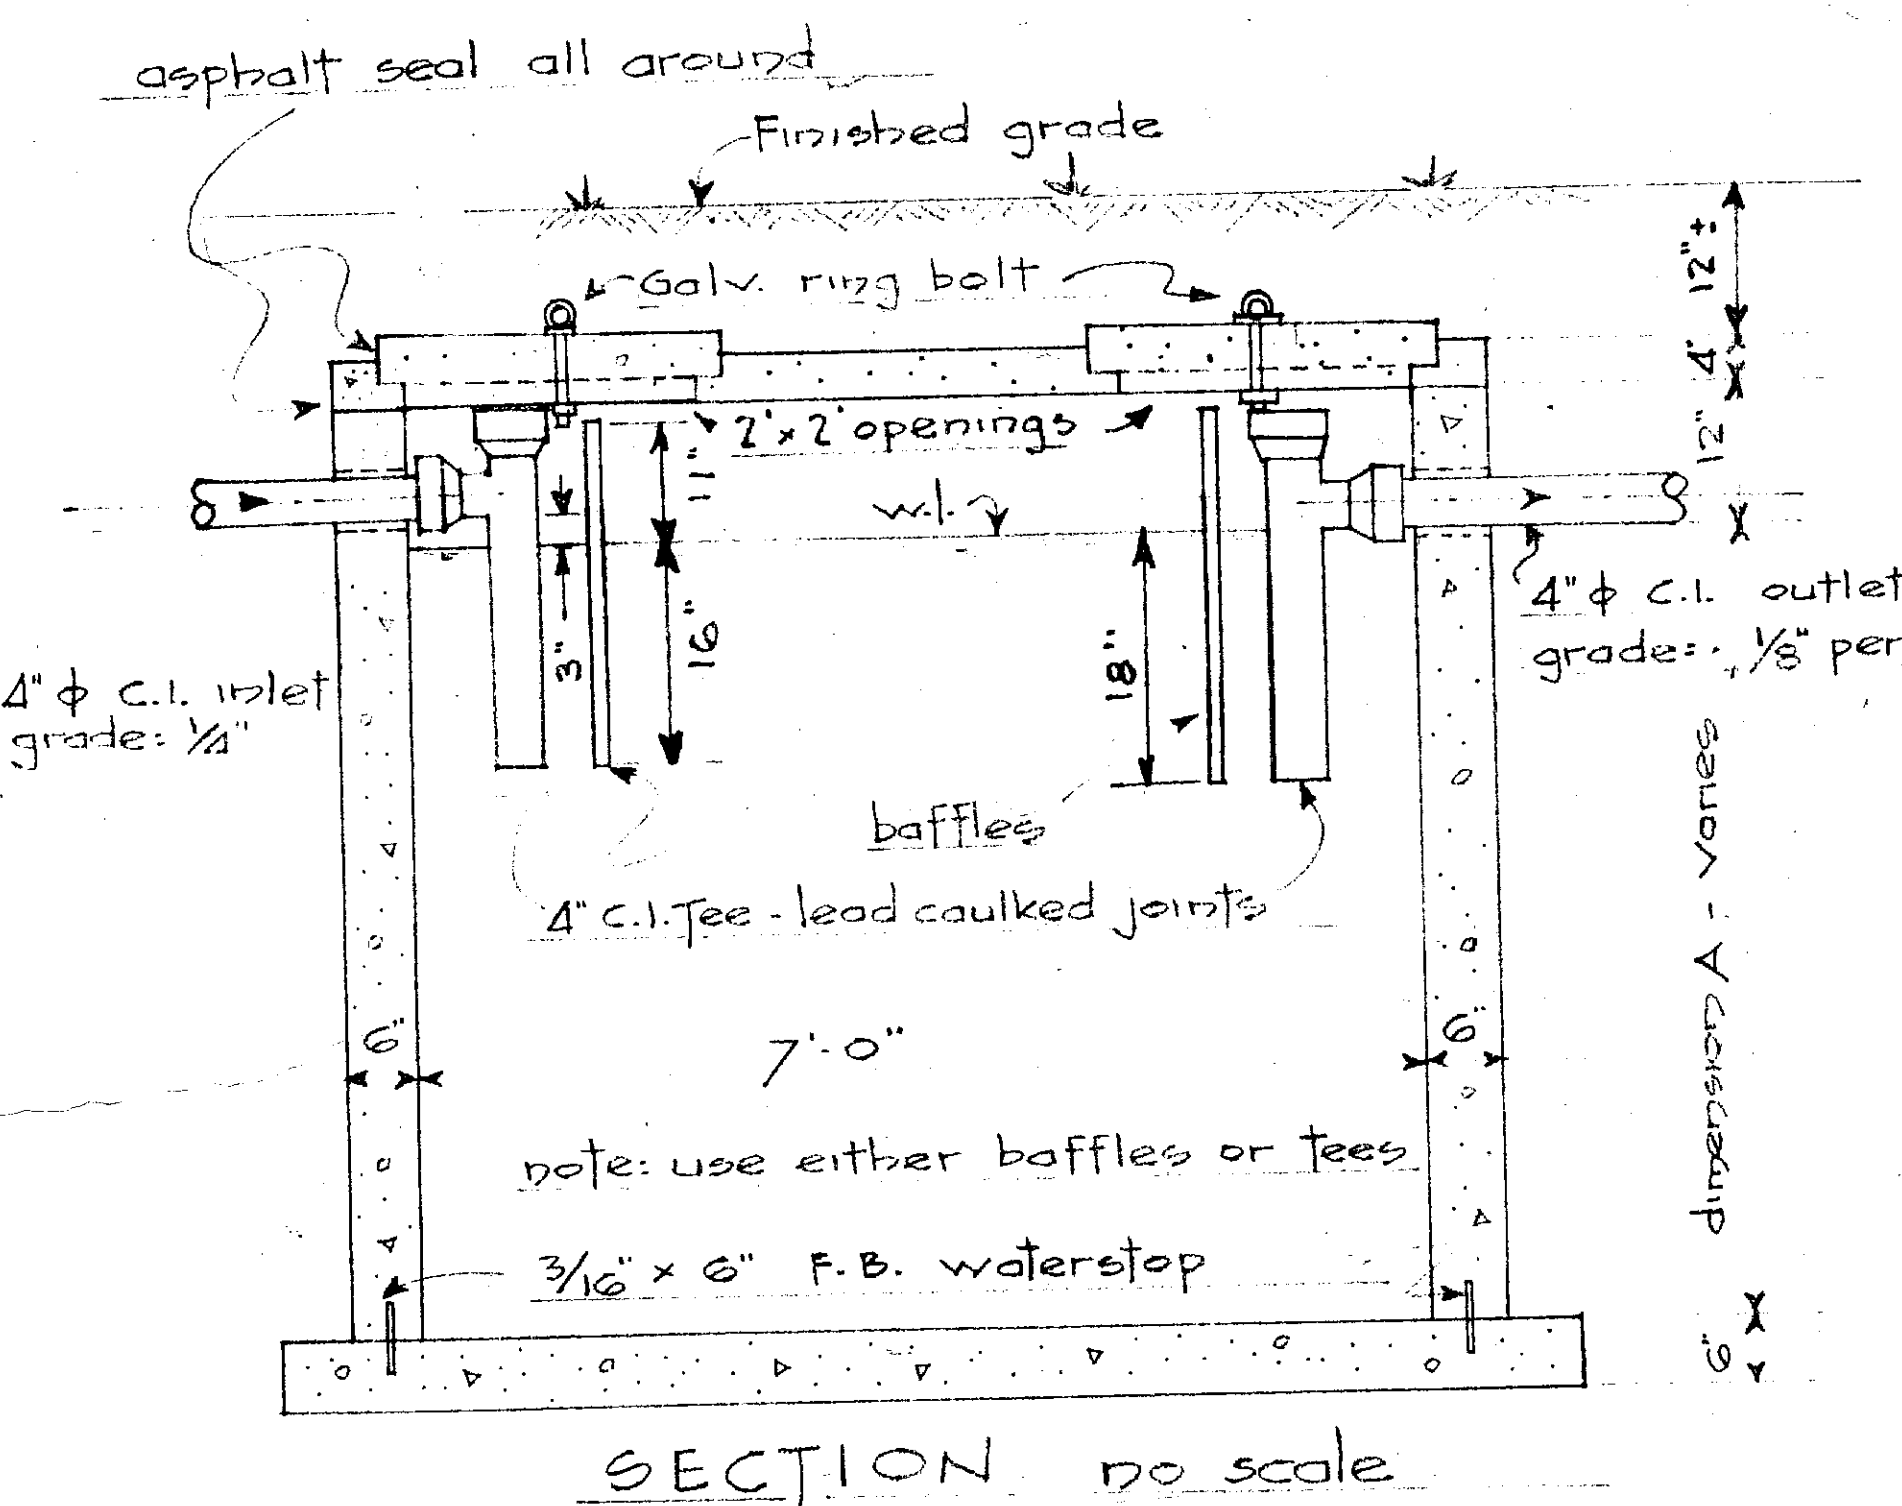 asphalt seal all around
Finished grade
Galv. ring bolt
12" ±
4"
12"
2' x 2' openings
11"
w.l.
3"
16"
18"
4" ϕ C.I. inlet
grade: 1/4"
4" ϕ C.I. outlet
grade: 1/8" per
baffles
4" C.I. Tee - lead caulked joints
dimension A - varies
6"
7'-0"
6"
note: use either baffles or tees
3/16" x 6" F.B. waterstop
6"
SECTION no scale